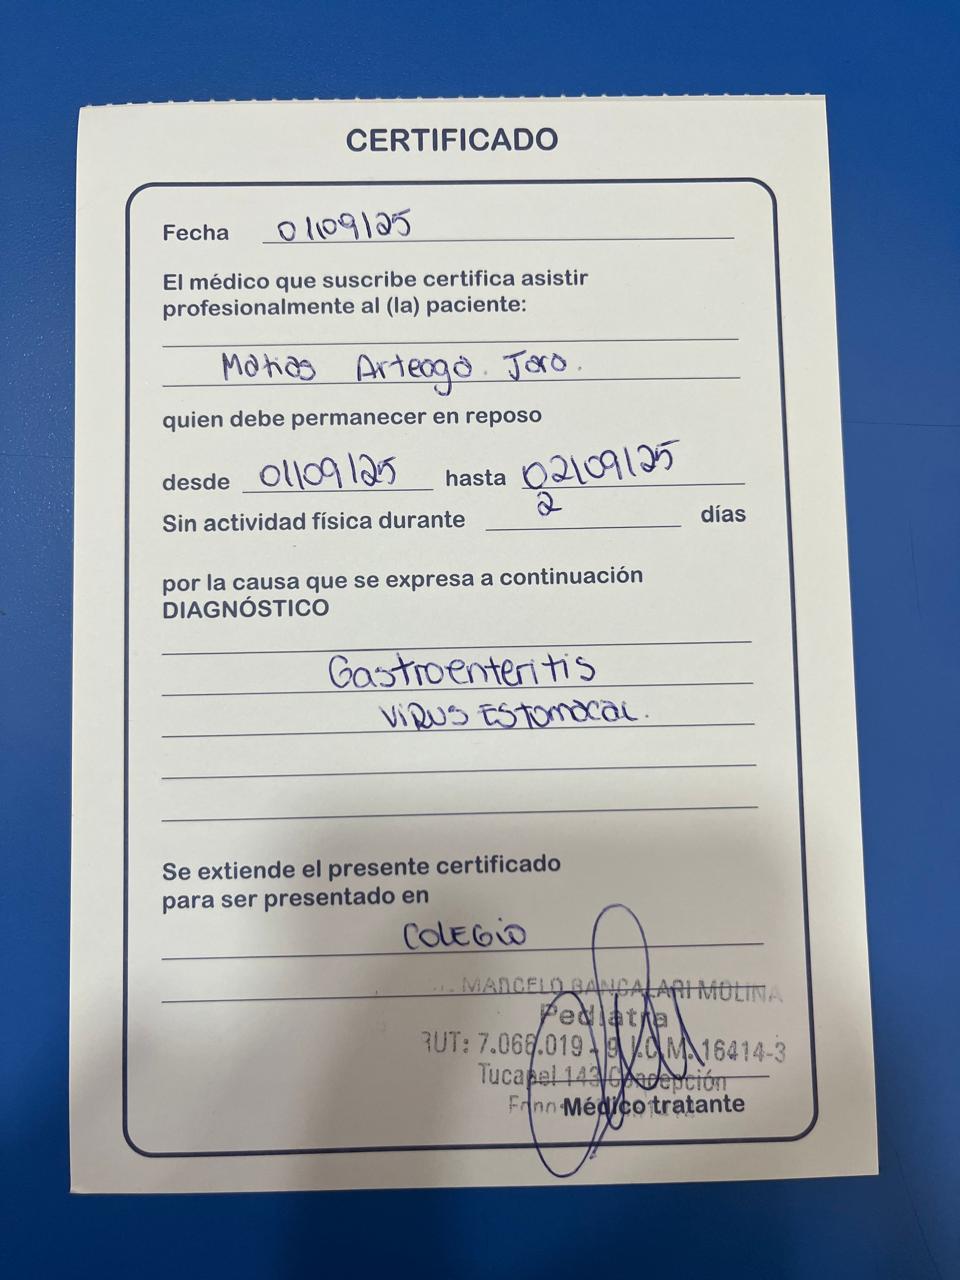 CERTIFICADO
Fecha 01/09/25
El médico que suscribe certifica asistir
profesionalmente al (la) paciente:
Matias Arteaga Jara.
quien debe permanecer en reposo
desde 01/09/25 hasta 02/09/25
Sin actividad física durante 2 días
por la causa que se expresa a continuación
DIAGNÓSTICO
Gastroenteritis
VIRUS ESTOMACAL.
Se extiende el presente certificado
para ser presentado en
COLEGIO
MARCELO BANCALARI MOLINA
Pediatra
RUT: 7.066.019 - 9 I.C.M. 16414-3
Tucapel 143 Concepción
Médico tratante